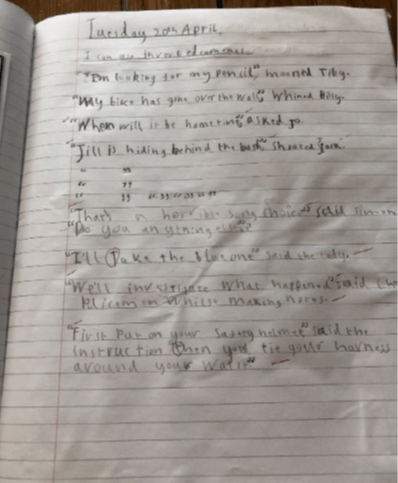 Tuesday 20th April
I can use inverted commas.
"I'm looking for my pencil," moaned Toby.
"My bike has gone over the wall," whined Billy.
"When will it be hometime," asked Jo.
"Jill is hiding behind the bush" shouted Jack.
" "
" "
" " " " " " " "
"That's a horrible song choice" said Simon
"Do you anything else?"
"I'll take the blue one" said the lady.
"We'll investigate what happened" said the
Policeman whilst making notes.
"First put on your safety helmet" said the
instruction then you tie your harness
around your waist."